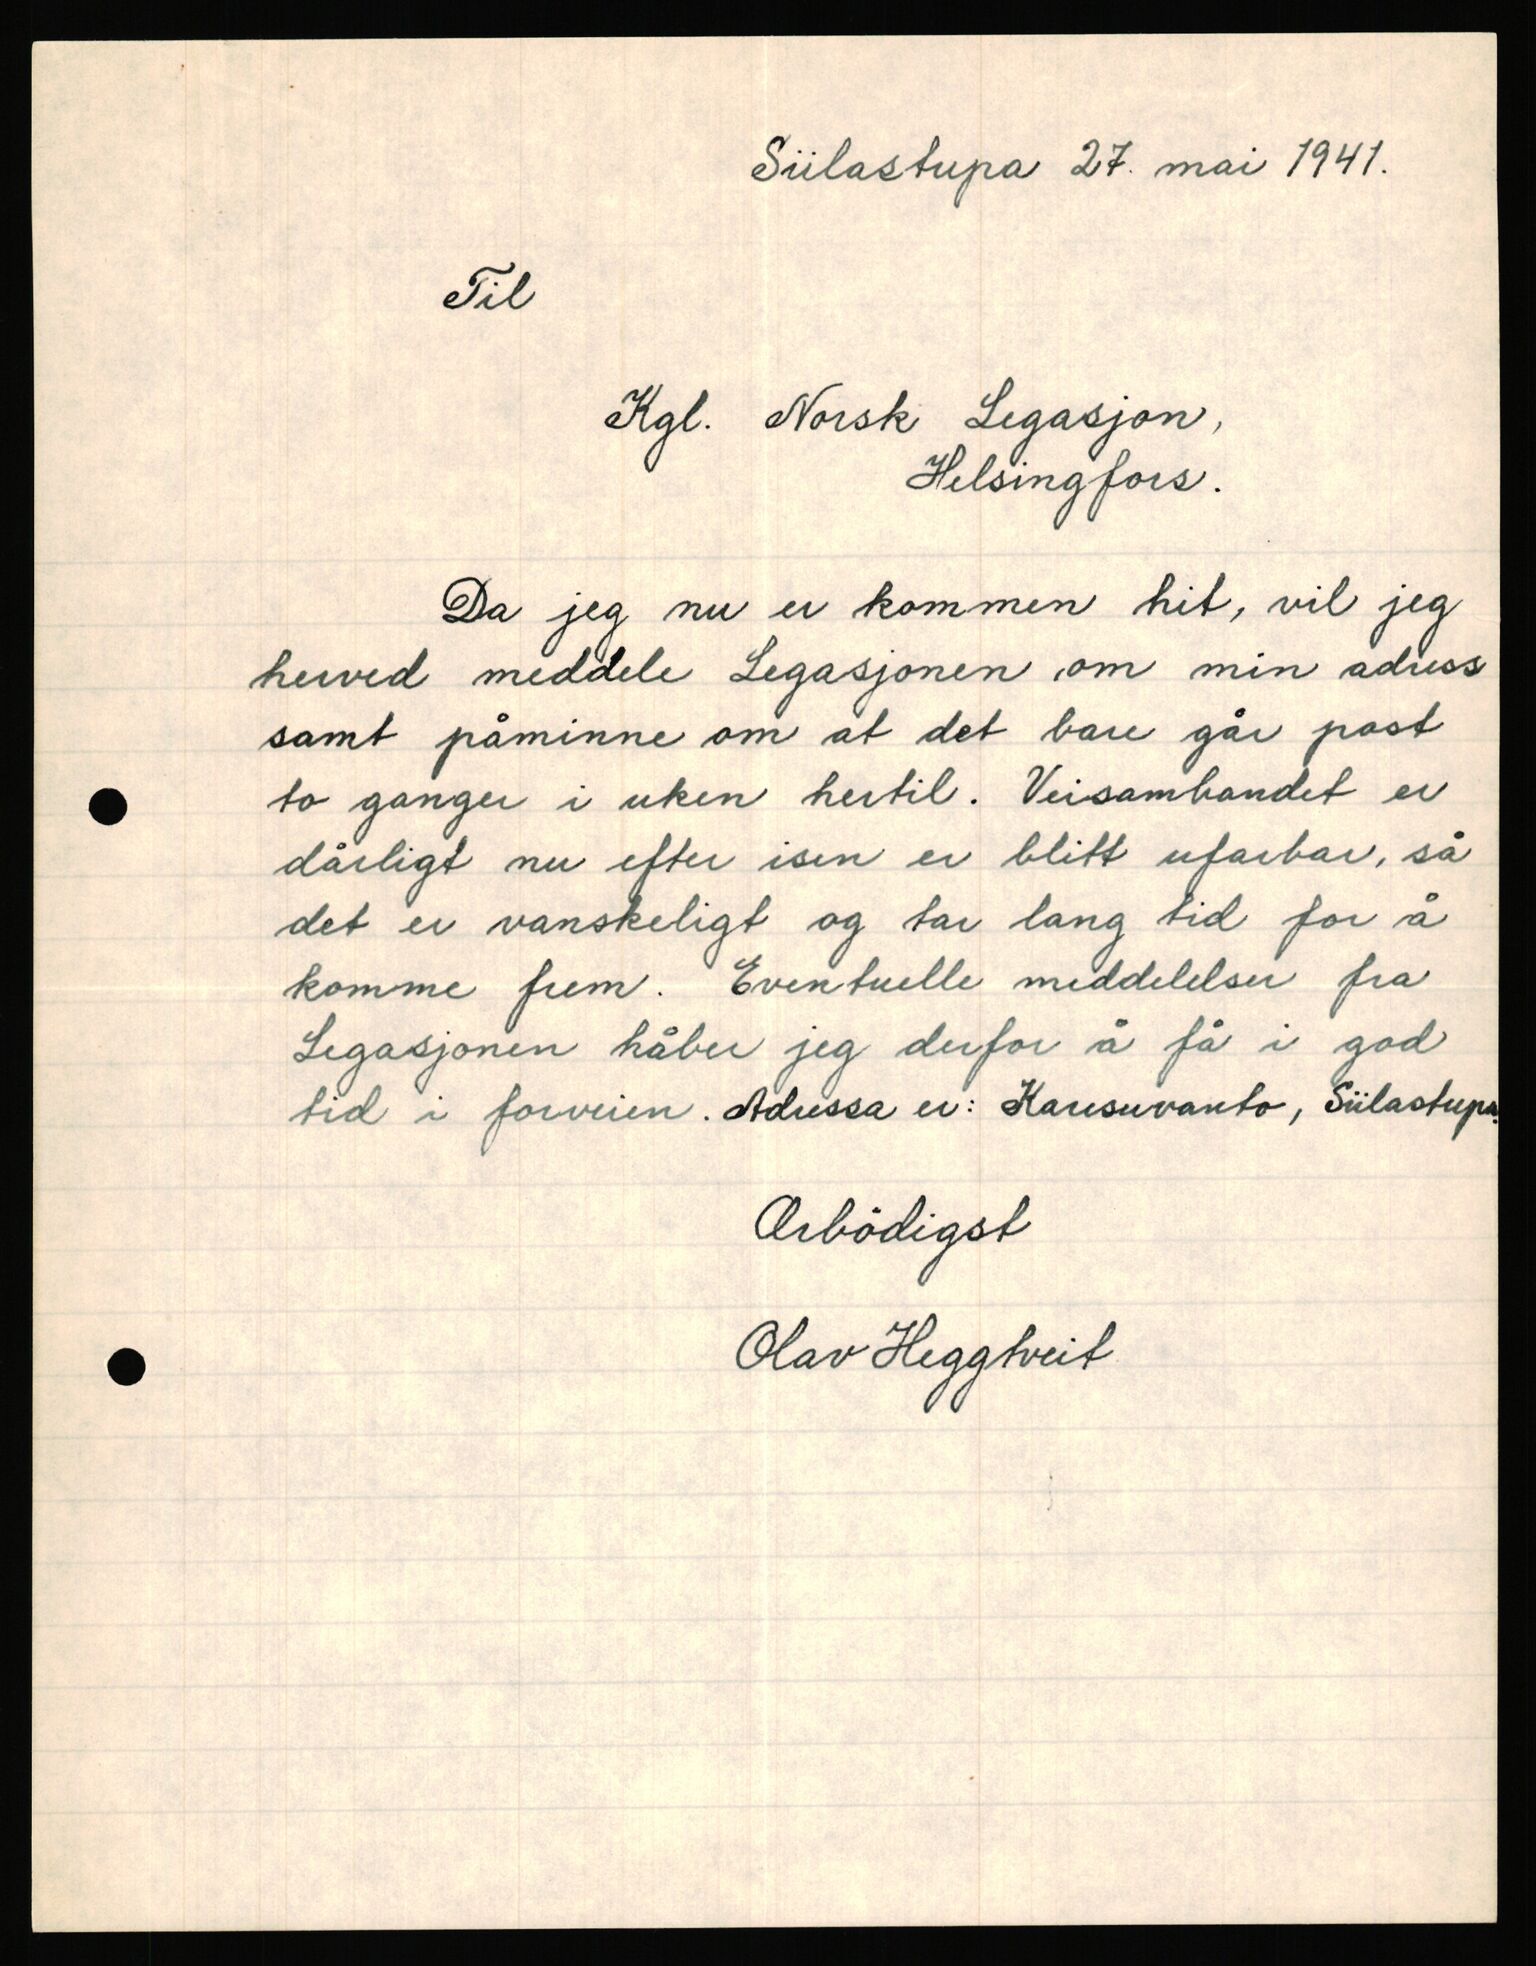 Siilastupa 27. mai 1941.
Til
Kgl. Norsk Legasjon,
Helsingfors.
Da jeg nu er kommen hit, vil jeg
herved meddele Legasjonen om min adress
samt påminne om at det bare går post
to ganger i uken hertil. Veisambandet er
dårligt nu efter isen er blitt ufarbar, så
det er vanskeligt og tar lang tid for å
komme frem. Eventuelle meddelelser fra
Legasjonen håber jeg derfor å få i god
tid i forveien. Adressa er: Karesuvanto, Siilastupa.
Ærbödigst
Olav Heggtveit